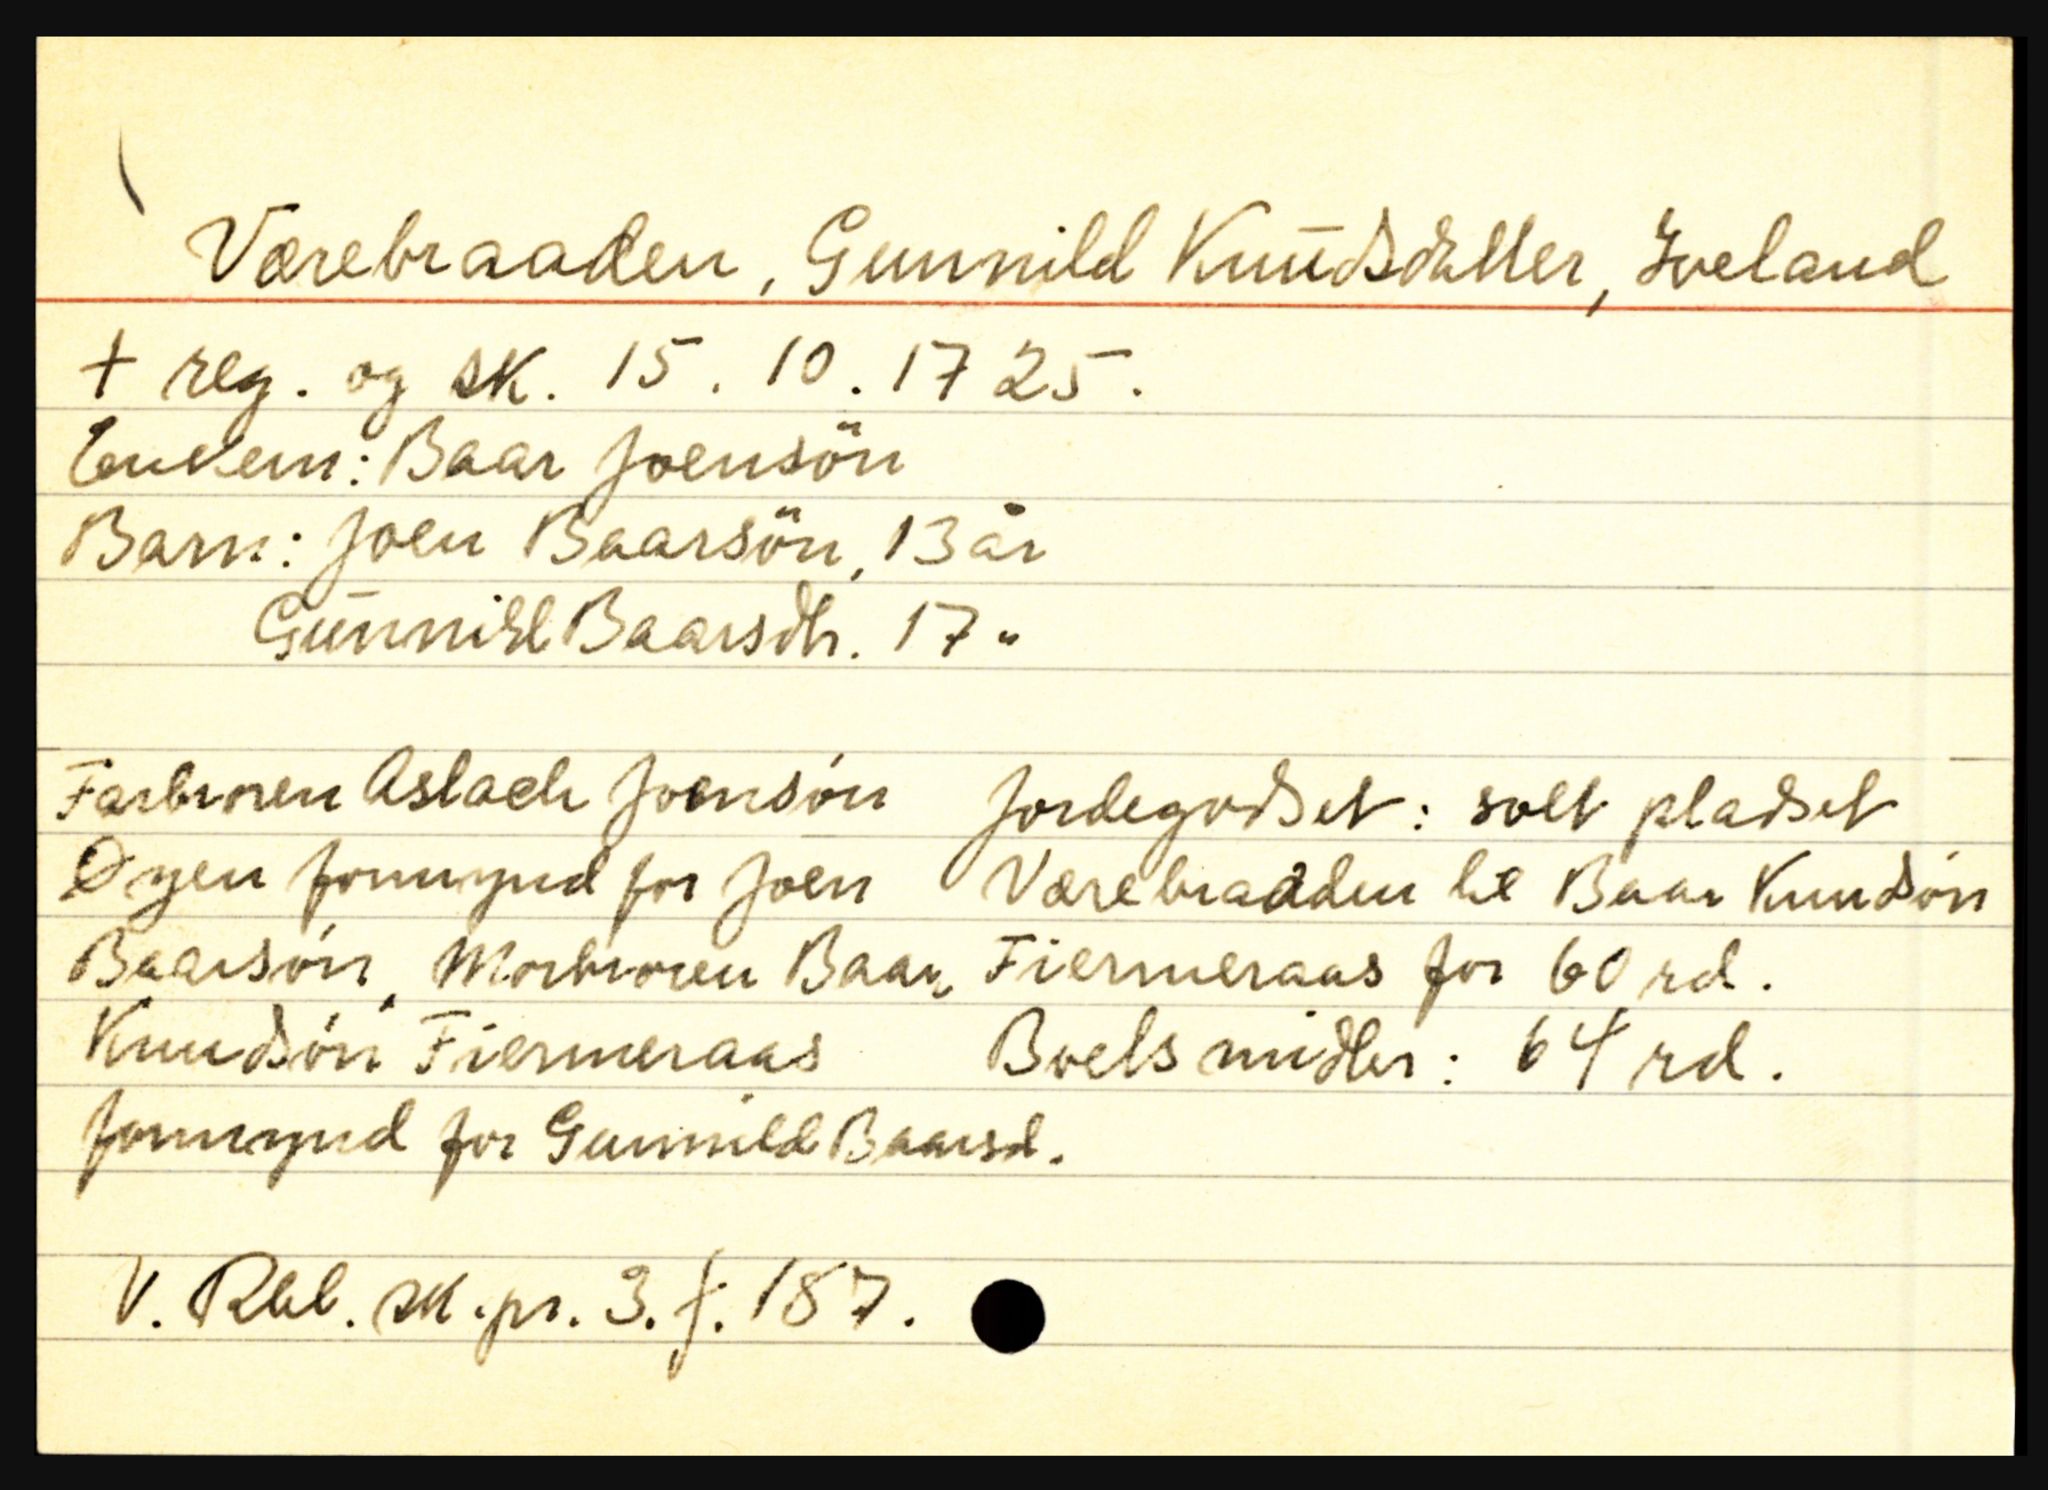 Værebraaden, Gunnild Knudsdatter, Iveland
+ reg. og sk. 15. 10. 1725.
Enkem: Baar Joensön
Barn: Joen Baarsön, 13 år
Gunnild Baarsdtr. 17 "
Farbroren Aslach Joensön
Øyen formynd for Joen
Baarsön, Morbroren Baar
Knudsön Fiermeraas
formynd for Gunnild Baarsd.
Jordegodset: solt pladset
Værebraaden til Baar Knudsön
Fiermeraas for 60 rd.
Boels midler: 64 rd.
V. Rbl. sk.pr. 3. f. 187.